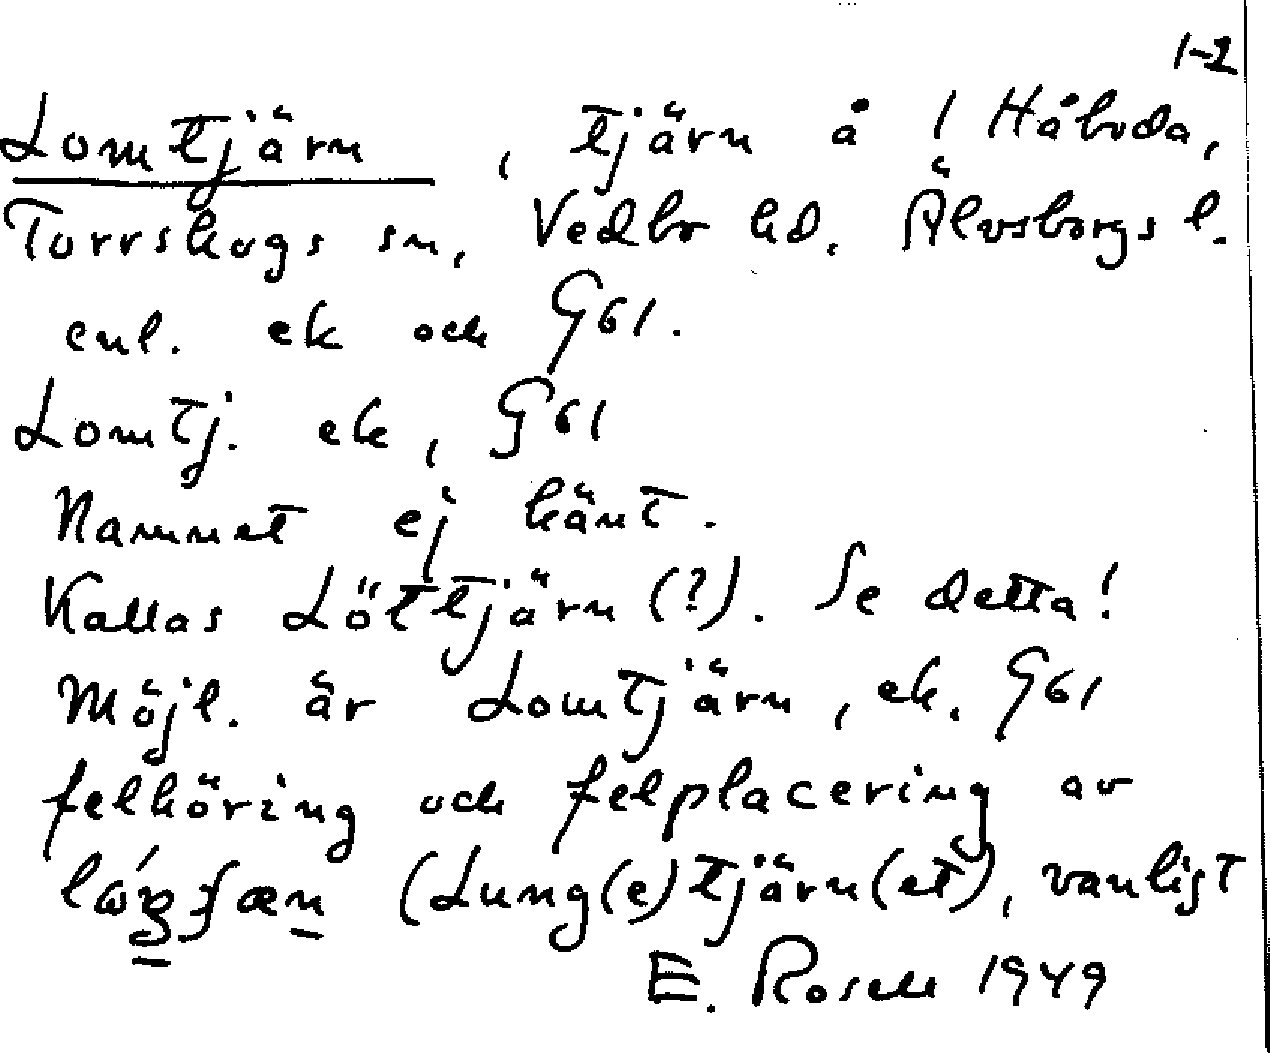 1-2
Lomtjärn, tjärn å 1 Håbods,
Torrskogs sn, Vedbo hd. Älvsborgs l.
enl. ek och G61.
Lomtj. ek, G61
Namnet ej känt.
Kallas Löttjärn (?). Se detta!
Möjl. är Lomtjärn, ek. G61
felhöring och felplacering av
(Lung(e)tjärn(et), vanligt
E. Rosell 1949